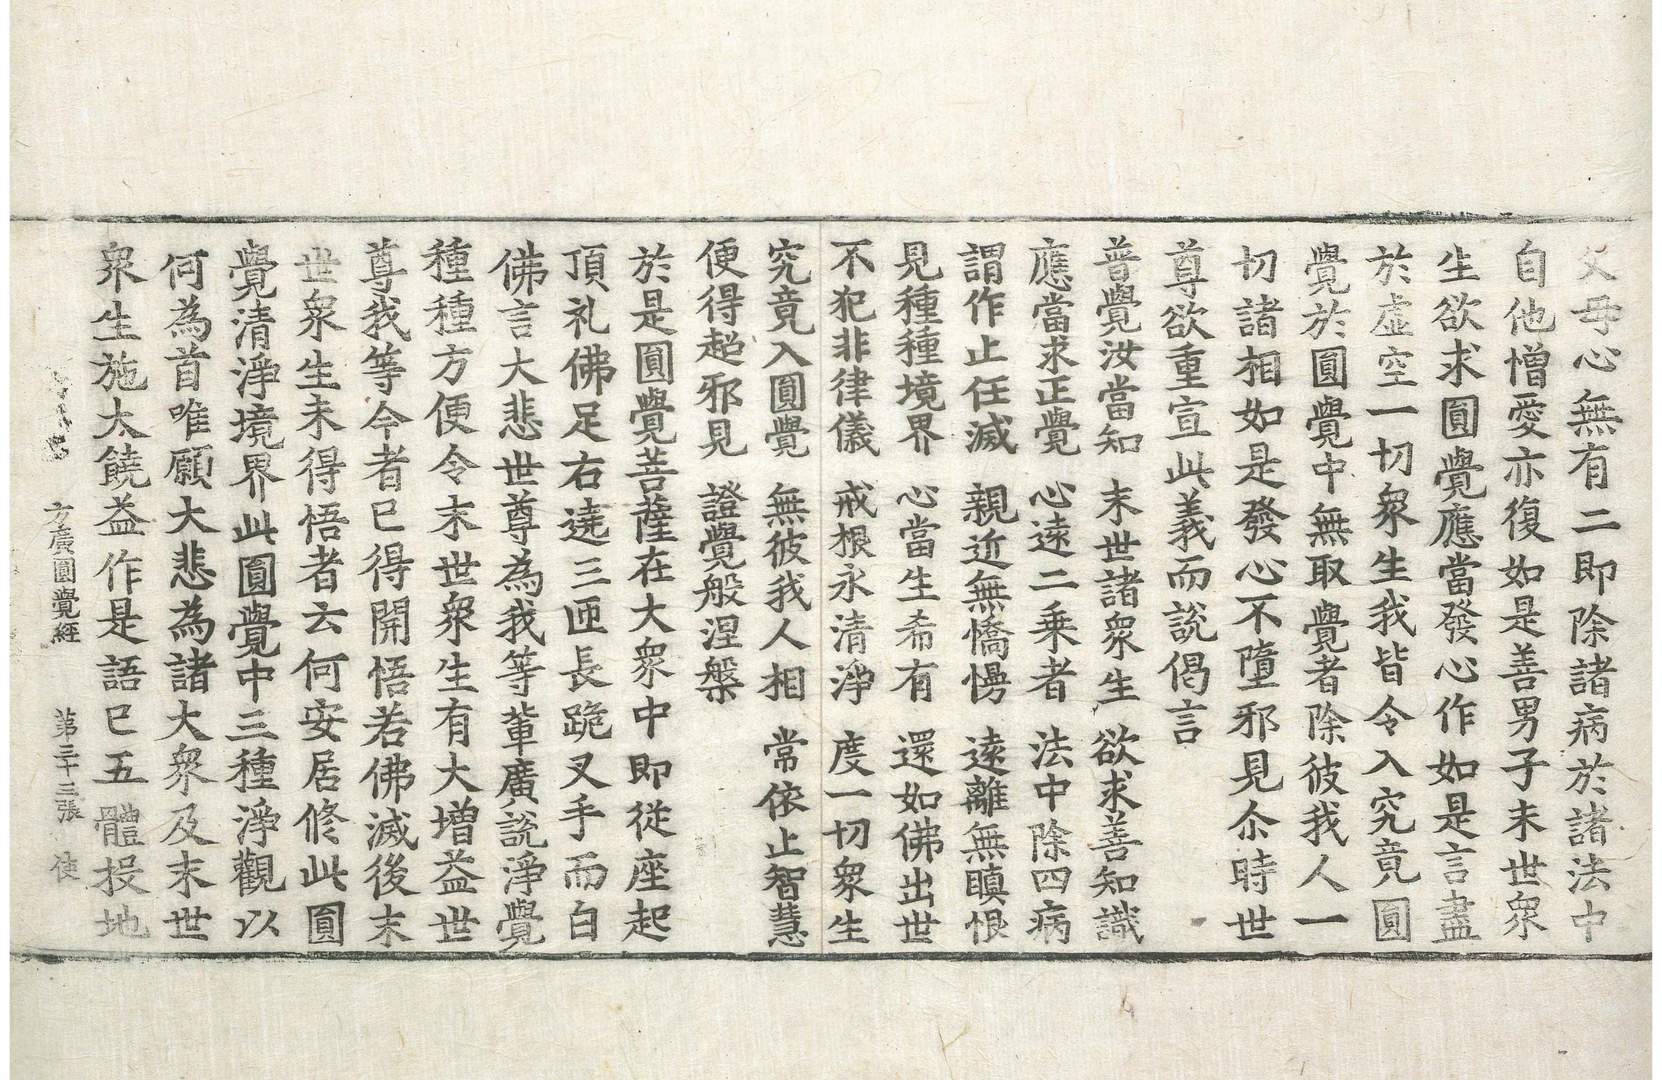 父母心無有二即除諸病於諸法中
自他憎愛亦復如是善男子末世衆
生欲求圓覺應當發心作如是言盡
於虛空一切衆生我皆令入究竟圓
覺於圓覺中無取覺者除彼我人一
切諸相如是發心不墮邪見尒時世
尊欲重宣此義而說偈言
普覺汝當知 末世諸衆生 欲求善知識
應當求正覺 心遠二乘者 法中除四病
謂作止任滅 親近無憍慢 遠離無瞋恨
見種種境界 心當生希有 還如佛出世
不犯非律儀 戒根永清淨 度一切衆生
究竟入圓覺 無彼我人相 常依止智慧
便得超邪見 證覺般涅槃
於是圓覺菩薩在大衆中即從座起
頂礼佛足右遶三匝長跪叉手而白
佛言大悲世尊為我等軰廣說淨覺
種種方便令末世衆生有大增益世
尊我等今者已得開悟若佛滅後末
世衆生未得悟者云何安居修此圓
覺清淨境界此圓覺中三種淨觀以
何為首唯願大悲為諸大衆及末世
衆生施大饒益作是語已五體投地
方廣圓覺經 第三十三張 使